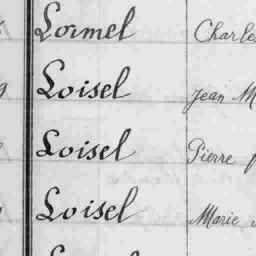 Lormel Charles
Loisel Jean M
Loisel Pierre
Loisel Marie